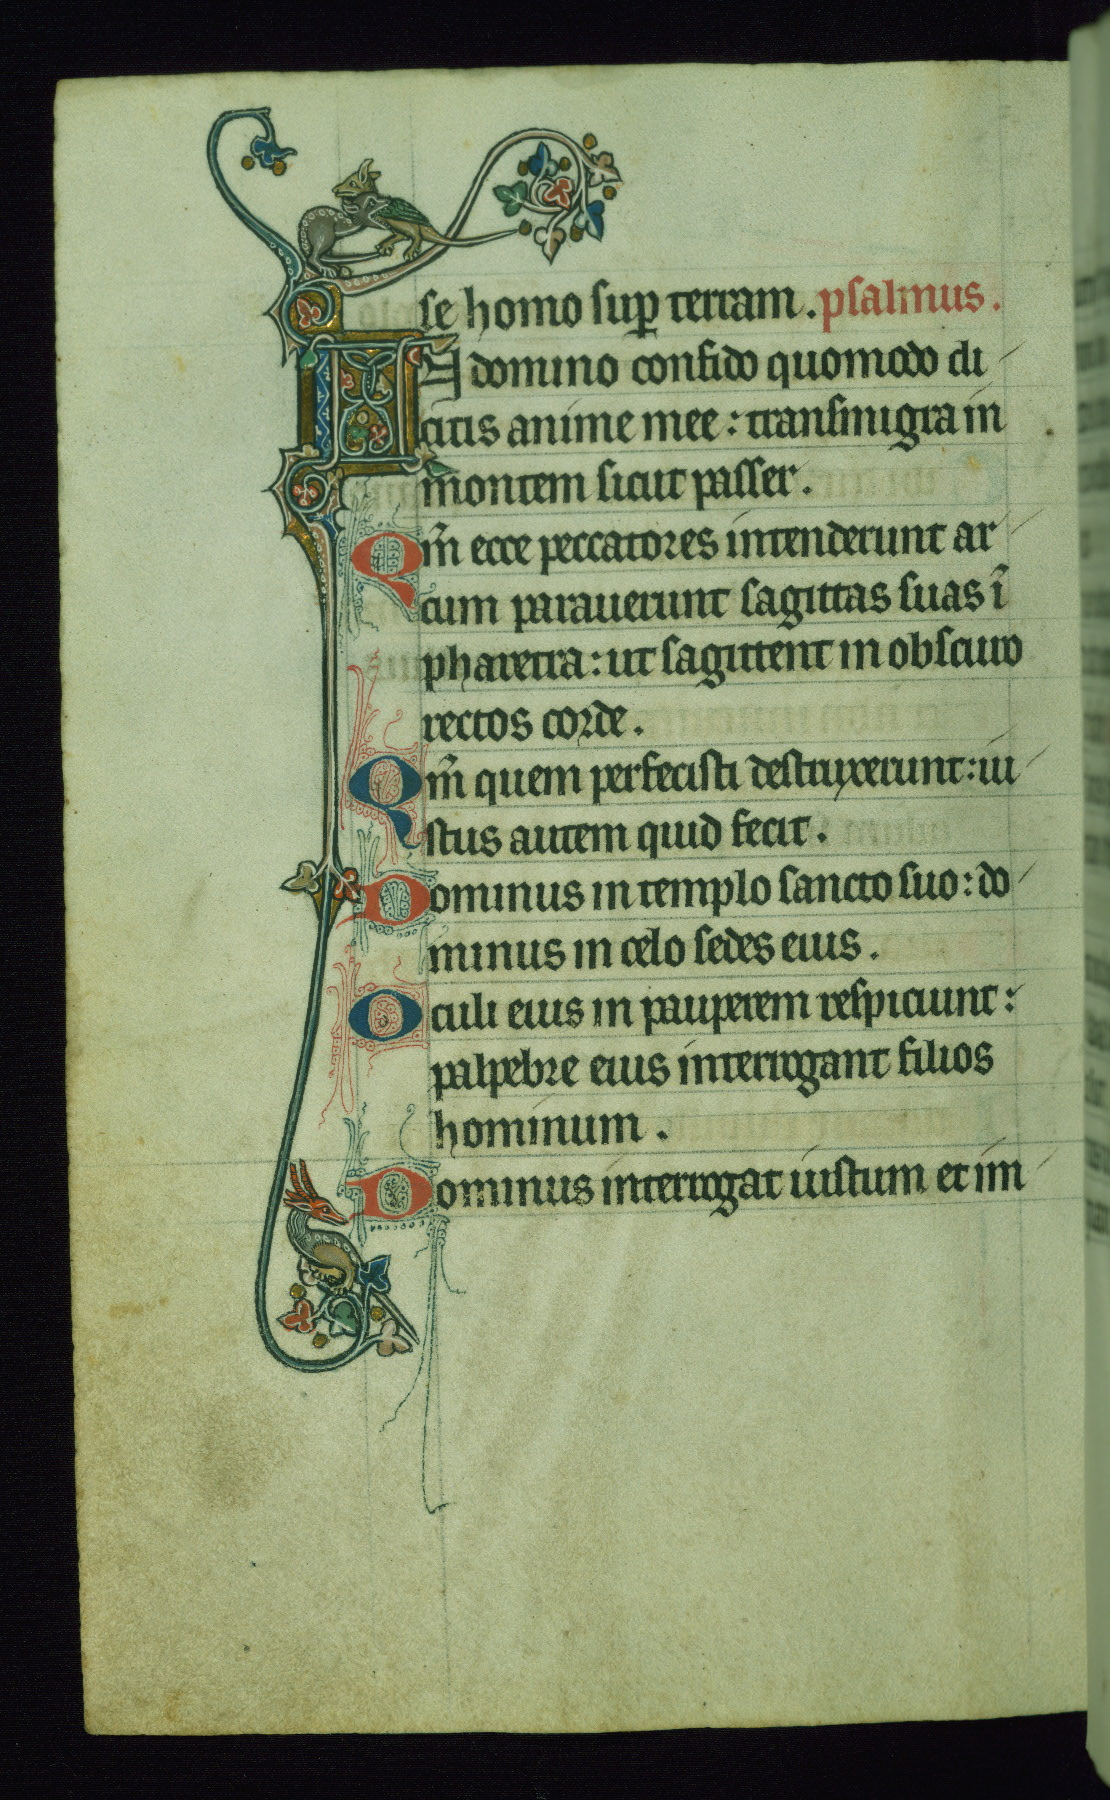 se homo sup terram. psalmus.
IN domino confido quomodo di
citis anime mee: transmigra in
montem sicut passer.
Qm̄ ecce peccatores intenderunt ar
cum parauerunt sagittas suas ī
pharetra: ut sagittent in obscuro
rectos corde.
Qm̄ quem perfecisti destruxerunt: iu
stus autem quid fecit.
Dominus in templo sancto suo: do
minus in celo sedes eius.
Oculi eius in pauperem respiciunt:
palpebre eius interrogant filios
hominum.
Dominus interrogat iustum et im